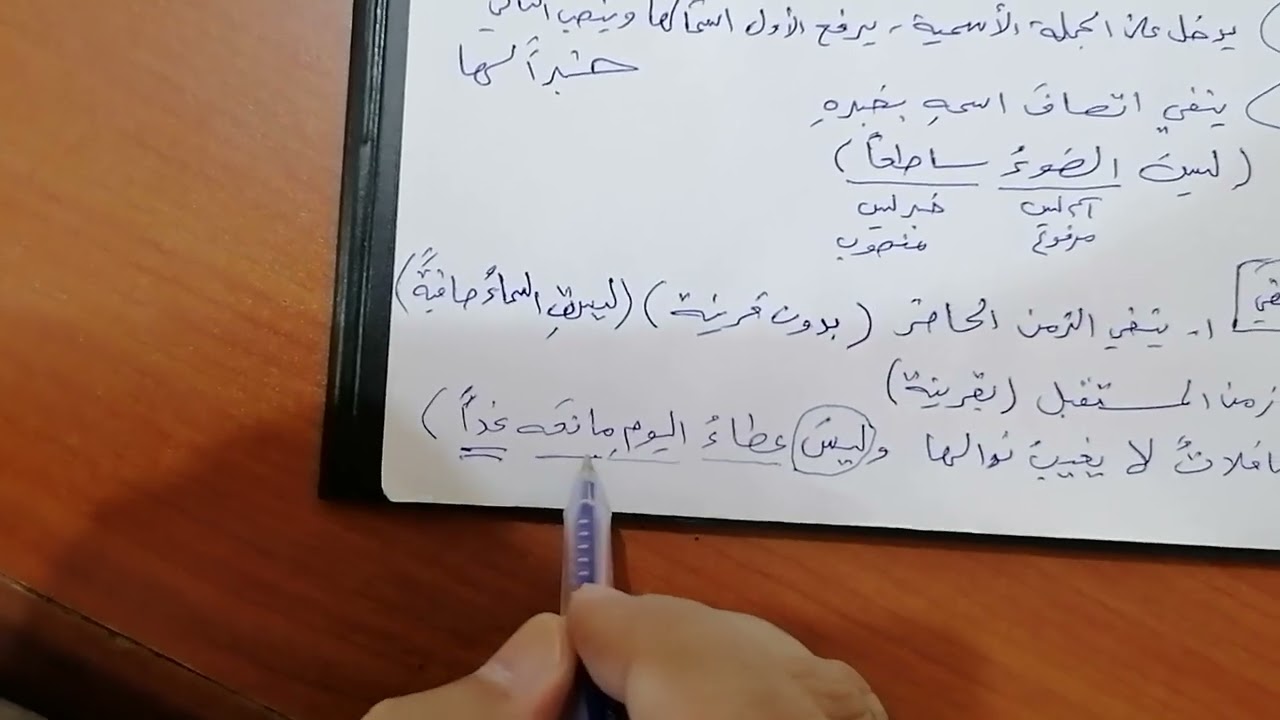 يدخل على الجملة الأسمية، يرفع الأول اسماً لها وينصب الثاني
خبراً لها
ينفي اتصافَ اسمهِ بخبرهِ
(ليسَ الضوءُ ساطعاً)
اسم ليس خبر ليس
مرفوع منصوب
١- ينفي الزمن الحاضر (بدون قرينة) (ليستِ السماءُ صافيةً)
زمن المستقبل (بقرينة)
لا يغيبُ نوالها وليسَ عطاءُ اليومِ مانعَه غداً)